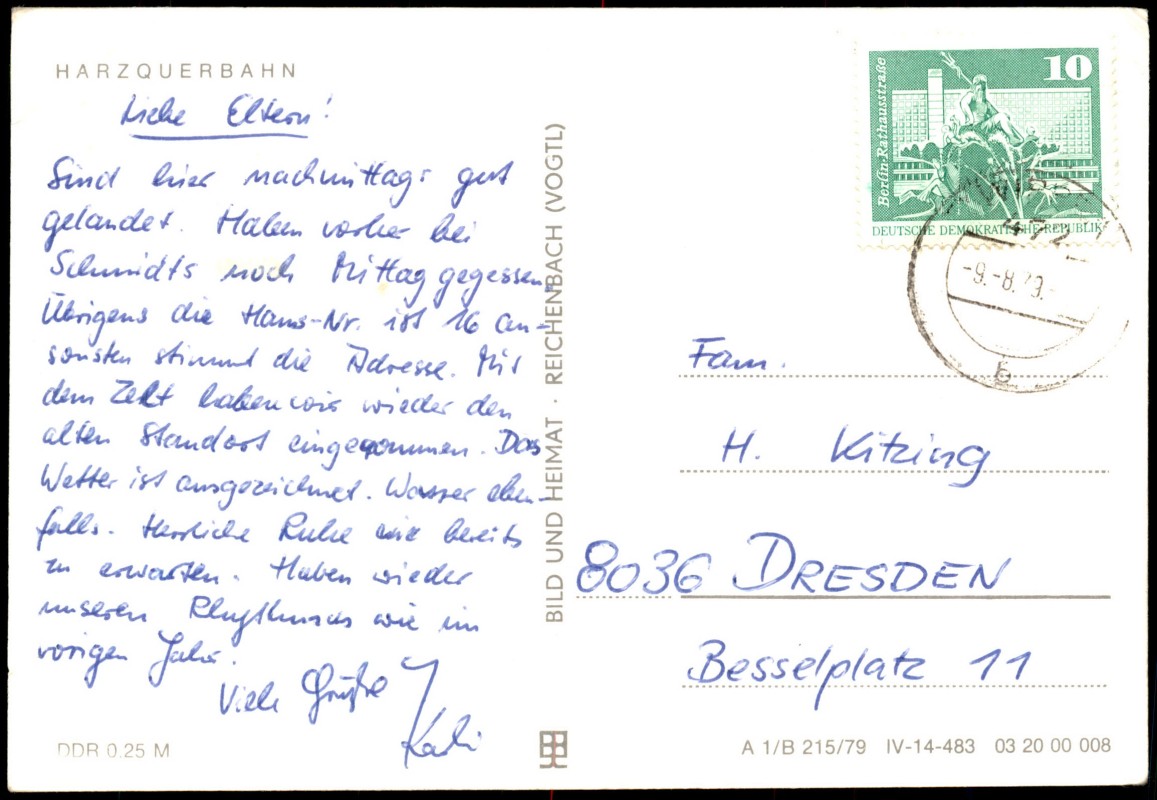 HARZQUERBAHN
Liebe Eltern!
Sind hier nachmittags gut
gelandet. Haben vorher bei
Schmidts noch Mittag gegessen.
Übrigens die Haus-Nr. ist 16 an-
sonsten stimmt die Adresse. Mit
dem Zelt haben wir wieder den
alten Standort eingenommen. Das
Wetter ist ausgezeichnet. Wasser eben-
falls. Herrliche Ruhe wie bereits
zu erwarten. Haben wieder
unseren Rhythmus wie im
vorigen Jahr.
Viele Grüße
DDR 0.25 M
BILD UND HEIMAT · REICHENBACH (VOGTL)
10
Berlin-Rathausstraße
DEUTSCHE DEMOKRATISCHE REPUBLIK
-9.-8.79.-
b
Fam.
H. Kitzing
8036 DRESDEN
Besselplatz 11
A 1/B 215/79 IV-14-483 03 20 00 008